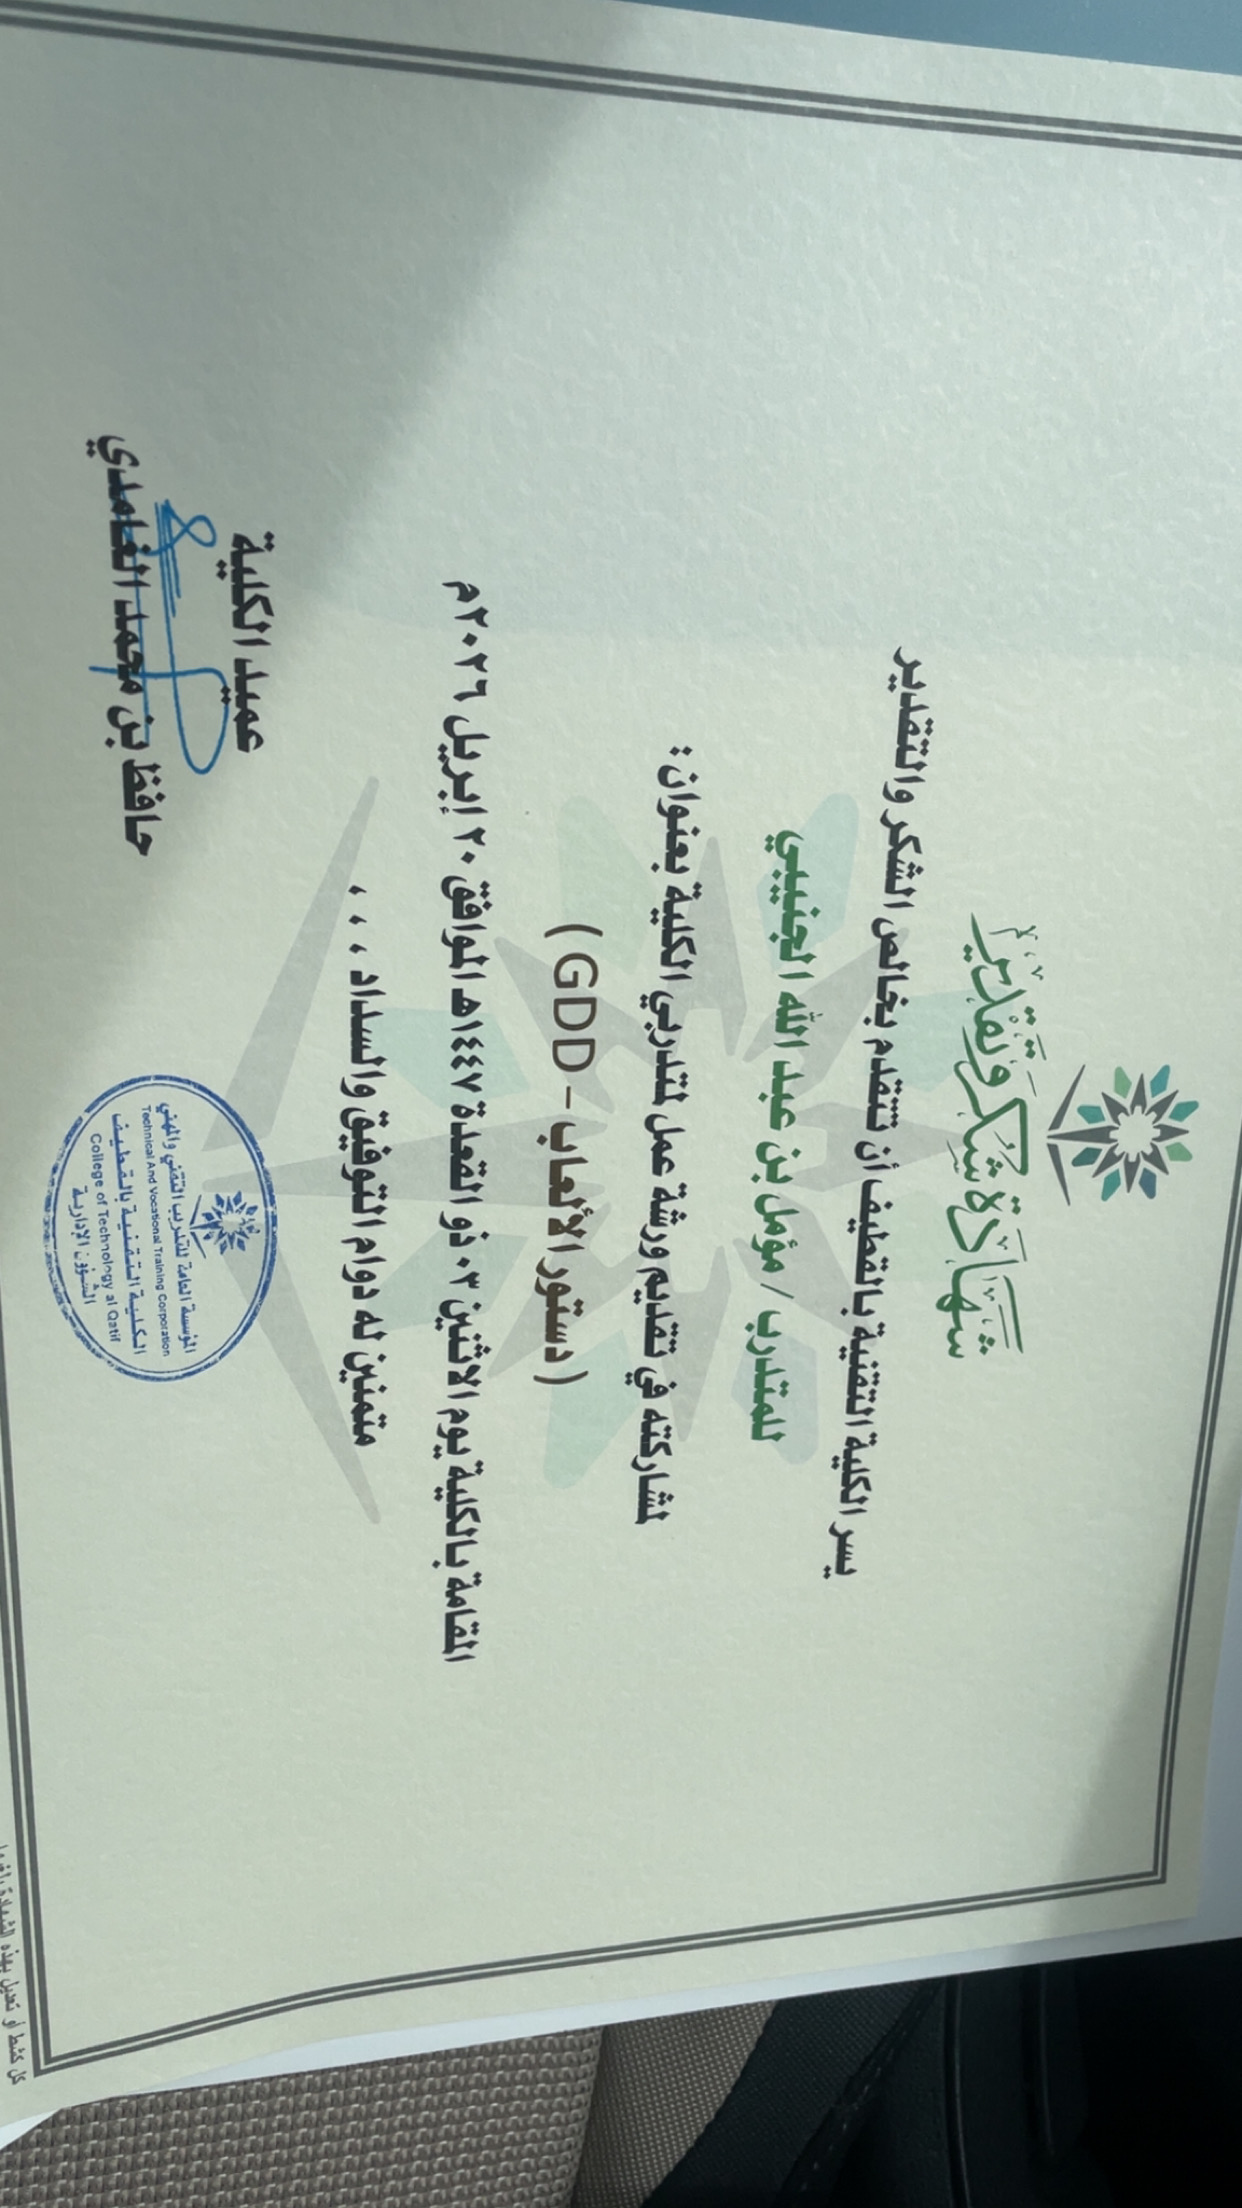 شهادة شكر وتقدير
يسر الكلية التقنية بالقطيف أن تتقدم بخالص الشكر والتقدير
للمتدرب / مؤمل بن عبد الله الجنيبي
لمشاركته في تقديم ورشة عمل لمتدربي الكلية بعنوان :
(دستور الألعاب – GDD)
المقامة بالكلية يوم الاثنين ٠٣ ذو القعدة ١٤٤٧هـ الموافق ٢٠ إبريل ٢٠٢٦م
متمنين له دوام التوفيق والسداد ، ، ،
عميد الكلية
حافظ بن محمد الغامدي
المؤسسة العامة للتدريب التقني والمهني
Technical And Vocational Training Corporation
الكلية التقنية بالقطيف
College of Technology al Qatif
الشؤون الإدارية
كل كشط أو تعديل بهذه الشهادة